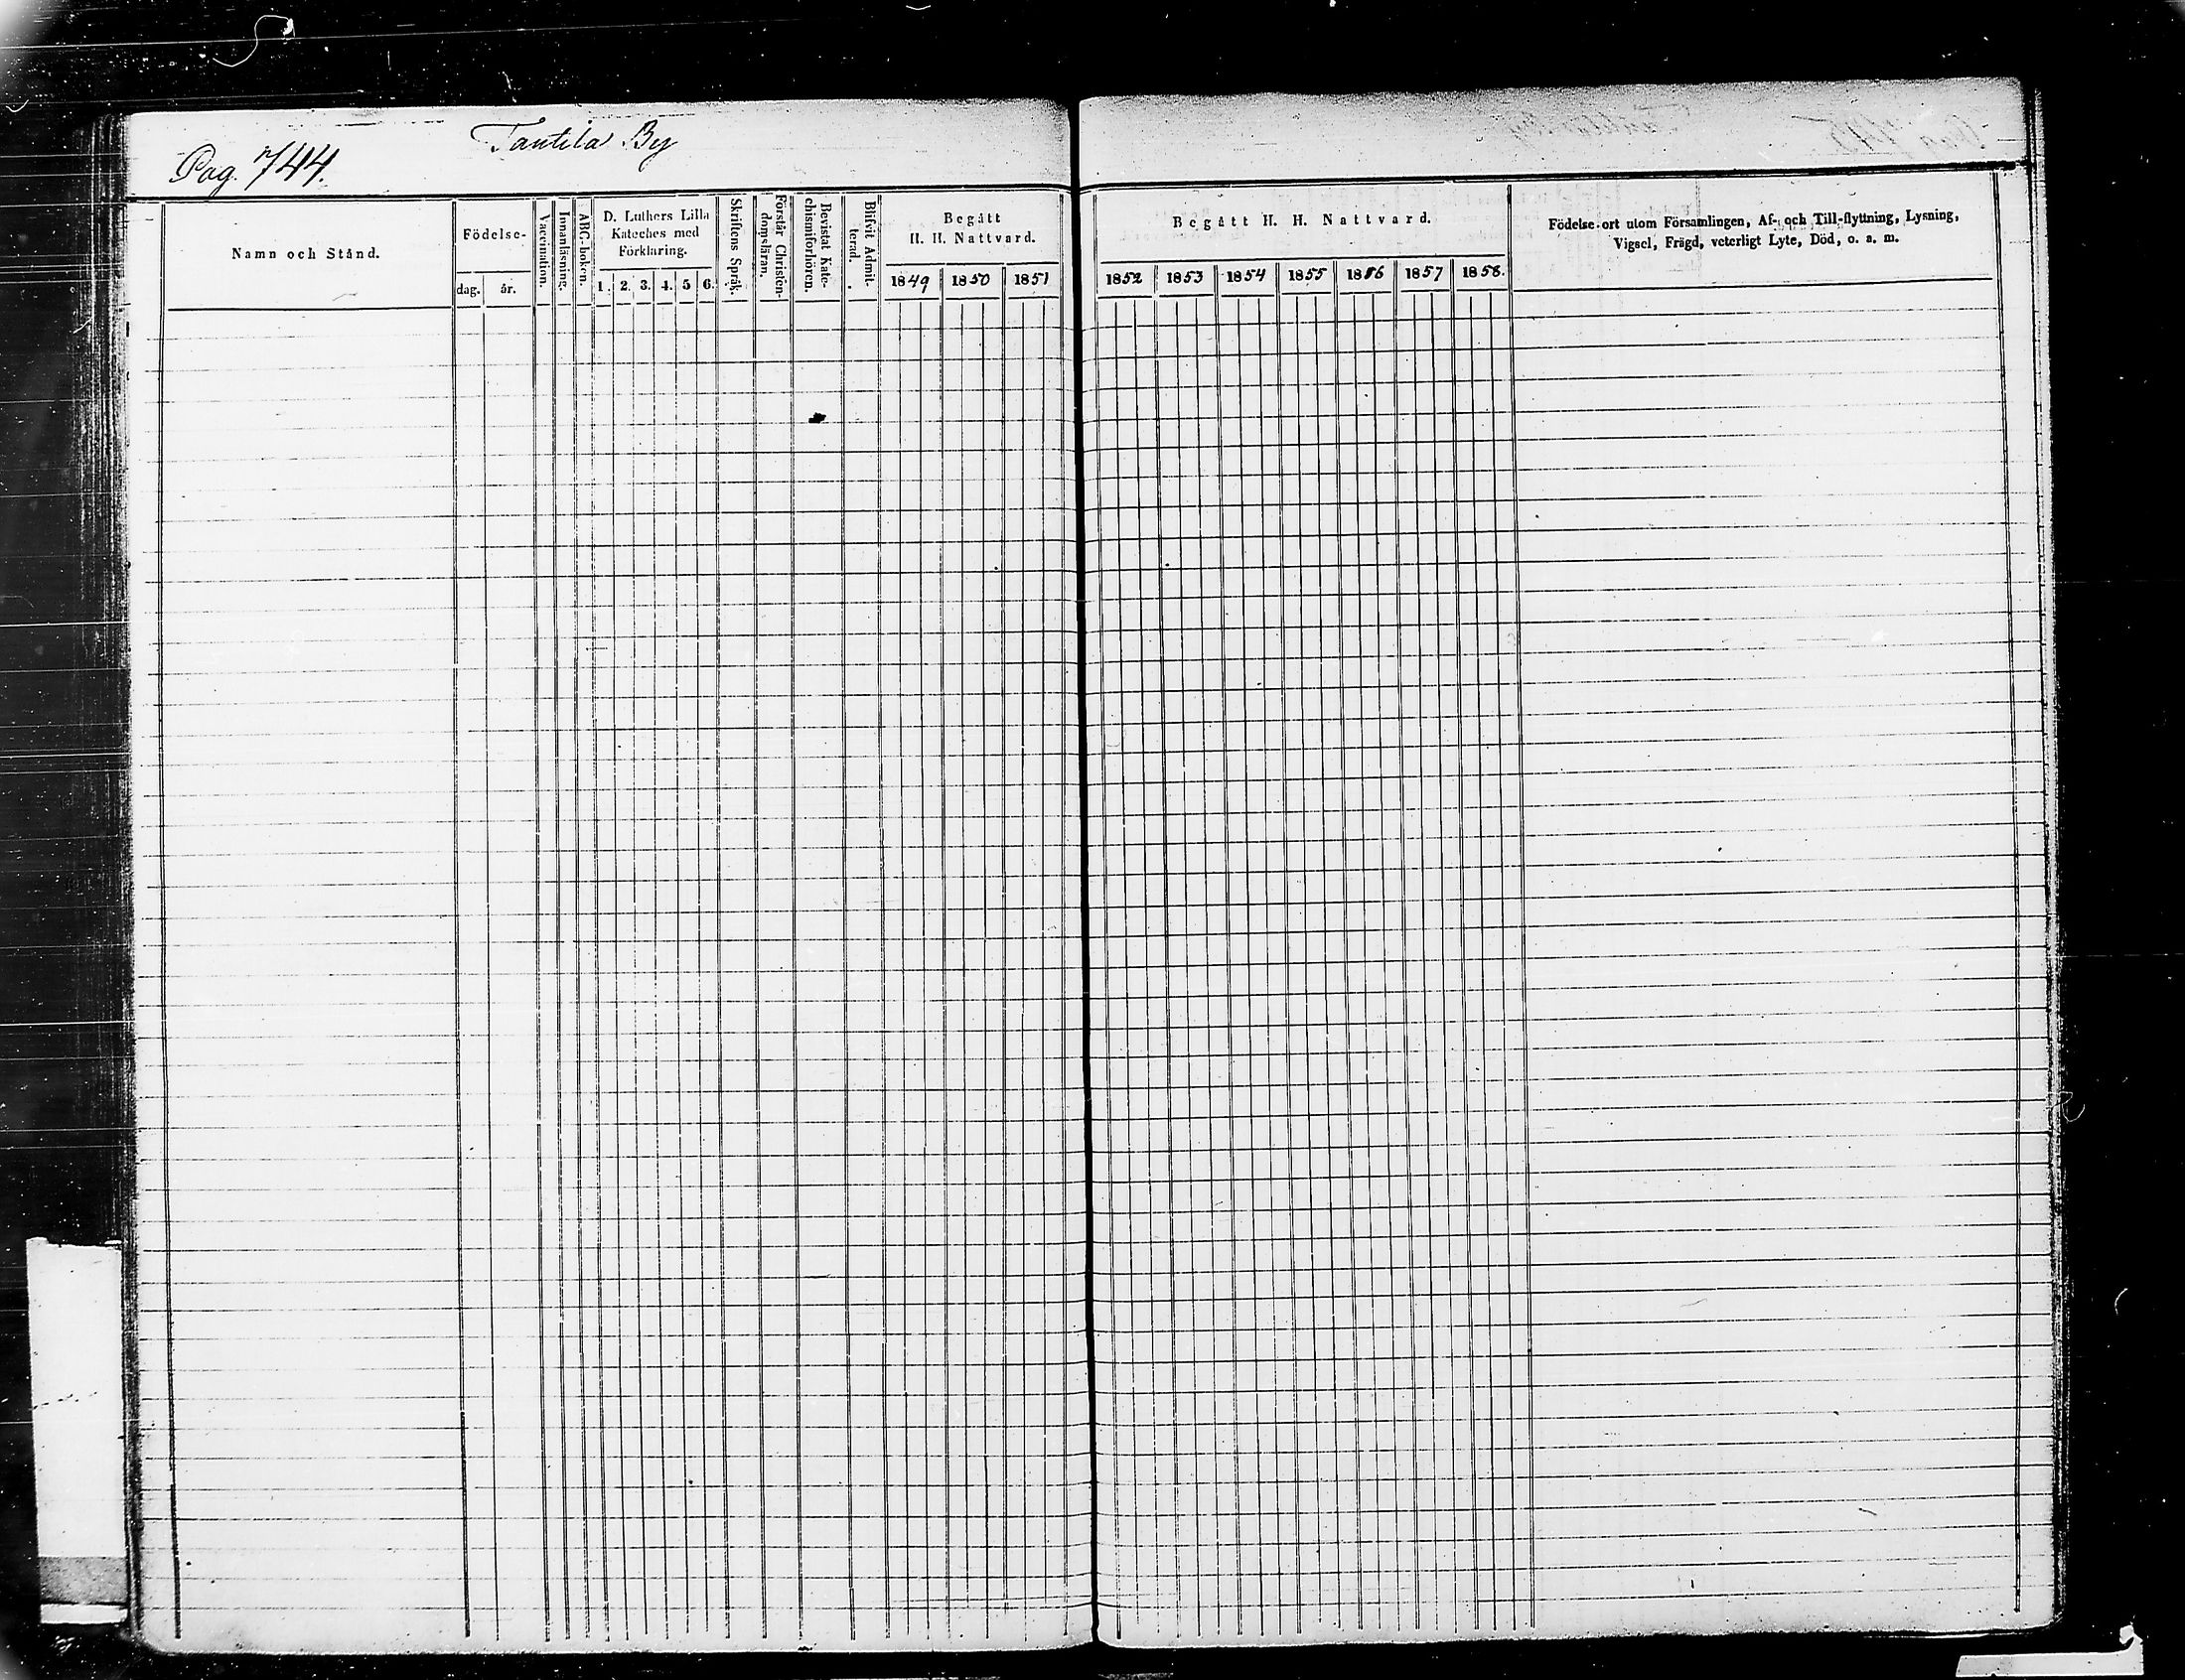 Pag. 744.
Tantila By
Namn och Stånd.
Födelse-
dag.
år.
Vaccination.
Innanläsning.
ABC-boken.
D. Luthers Lilla
Kateches med
Förklaring.
1. 2. 3. 4. 5 6.
Skriftens Språk.
Förstår Christen-
domsläran.
Bevistat Kate-
chismiförhören.
Blifvit Admit-
terad.
Begått
H. H. Nattvard.
1849 1850 1851
Begått H. H. Nattvard.
1852 1853 1854 1855 1856 1857 1858.
Födelse-ort utom Församlingen, Af- och Till-flyttning, Lysning,
Vigsel, Frägd, veterligt Lyte, Död, o. a. m.